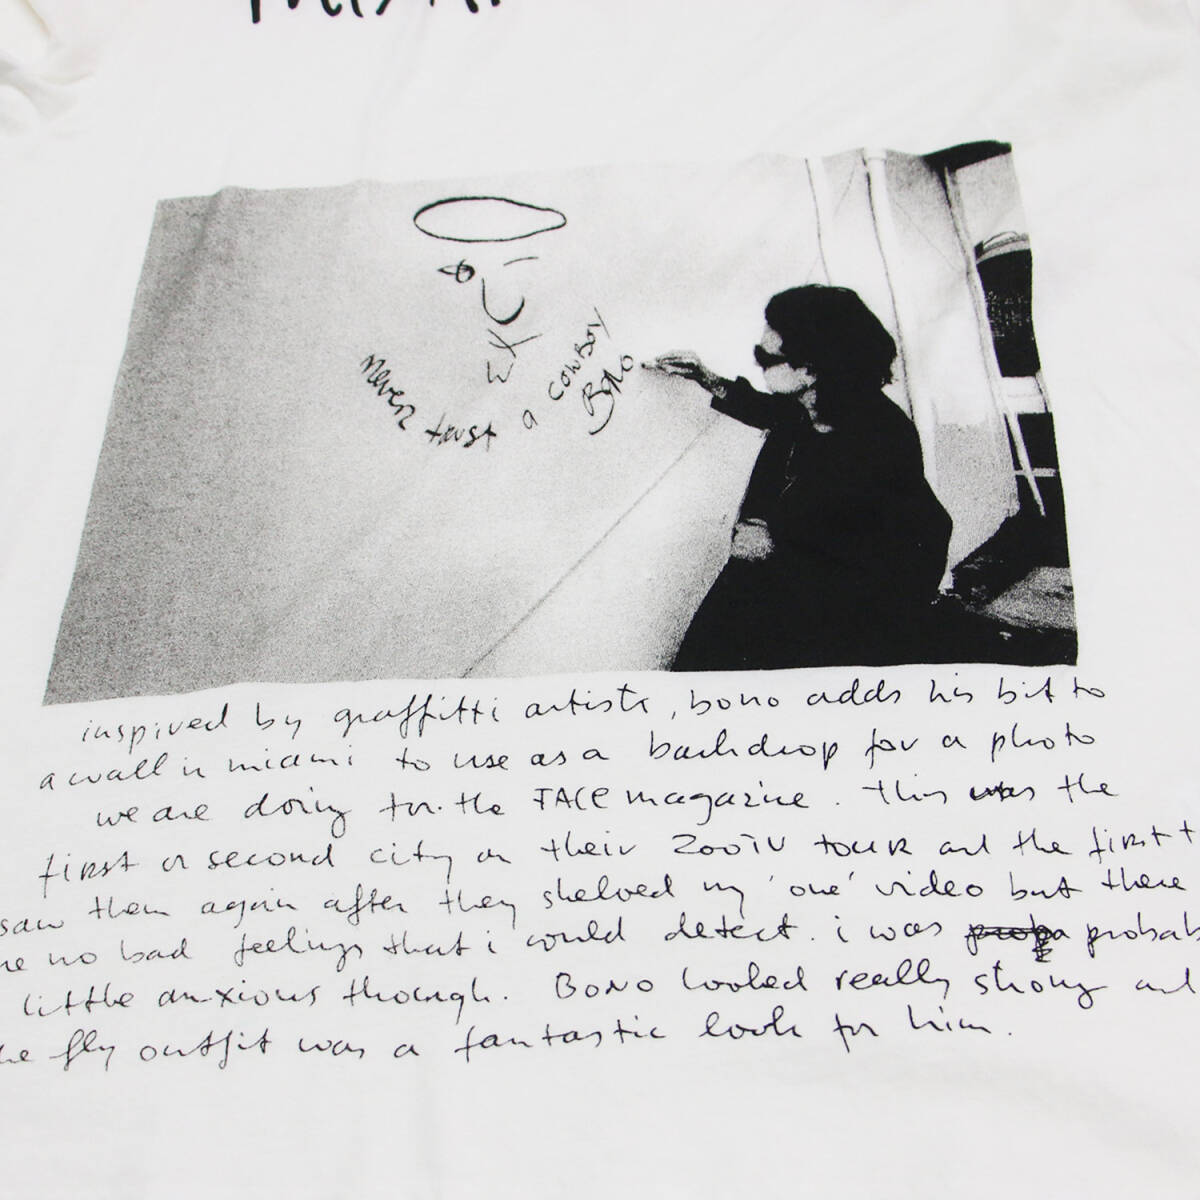 never trust a cowboy
Bono
inspired by graffitti artists, bono adds his bit to
a wall in miami to use as a backdrop for a photo
we are doing for the FACE magazine. this was the
first or second city on their ZOOTV tour and the first t
saw them again after they shelved my 'one' video but there
no bad feelings that i could detect. i was probab
little anxious though. Bono looked really strong and
he fly outfit was a fantastic look for him.